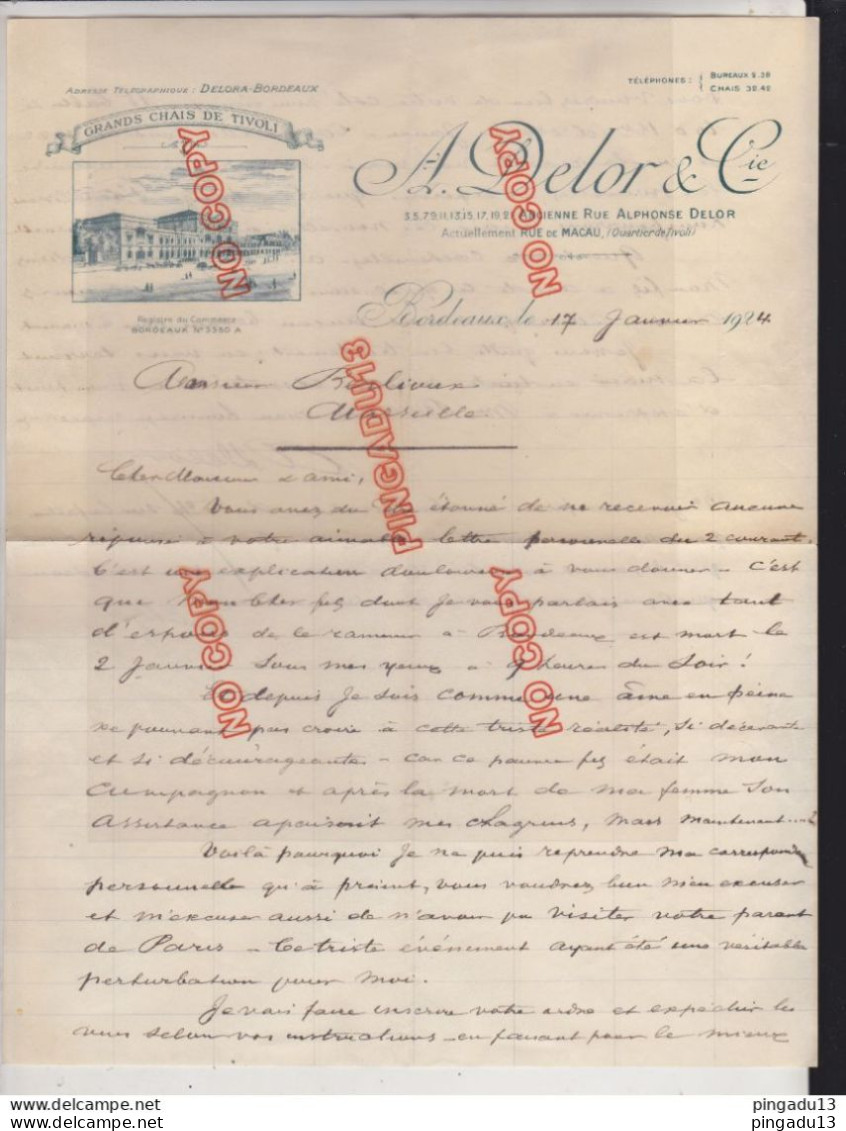 ADRESSE TÉLÉGRAPHIQUE : DELORA-BORDEAUX
TÉLÉPHONES : BUREAUX 9.39
CHAIS 32.42
GRANDS CHAIS DE TIVOLI
A. Delor & Cie
3.5.7.9.11.13.15.17.19.21 ANCIENNE RUE ALPHONSE DELOR
Actuellement RUE DE MACAU, (Quartier de Tivoli)
Registre du Commerce
BORDEAUX N° 3550 A
Bordeaux, le 17 Janvier 1924
Monsieur
Marseille
Cher Monsieur & ami,
Vous avez du être étonné de ne recevoir aucune
réponse à votre aimable lettre personnelle du 2 courant.
C'est une explication douloureuse à vous donner - C'est
que mon cher fils dont je vous parlais avec tant
d'espoir de le ramener à Bordeaux est mort le
2 Janvier sous mes yeux à 9 heures du soir !
Et depuis je suis comme une âme en peine
ne pouvant pas croire à cette triste réalité, si décevante
et si décourageante - car ce pauvre fils était mon
compagnon et après la mort de ma femme son
assistance apaisait mes chagrins, mais maintenant....?
Voilà pourquoi je ne puis reprendre ma correspondce
personnelle qu'à présent, vous voudrez bien m'en excuser
et m'excuser aussi de n'avoir pu visiter votre parent
de Paris - Ce triste événement ayant été une véritable
perturbation pour moi.
Je vais faire inscrire votre ordre et expédier les
vins selon vos instructions - en faisant pour le mieux
NO COPY
NO COPY
PINGADU13
NO COPY
NO COPY
pingadu13
pingadu13
pingadu13
pingadu13